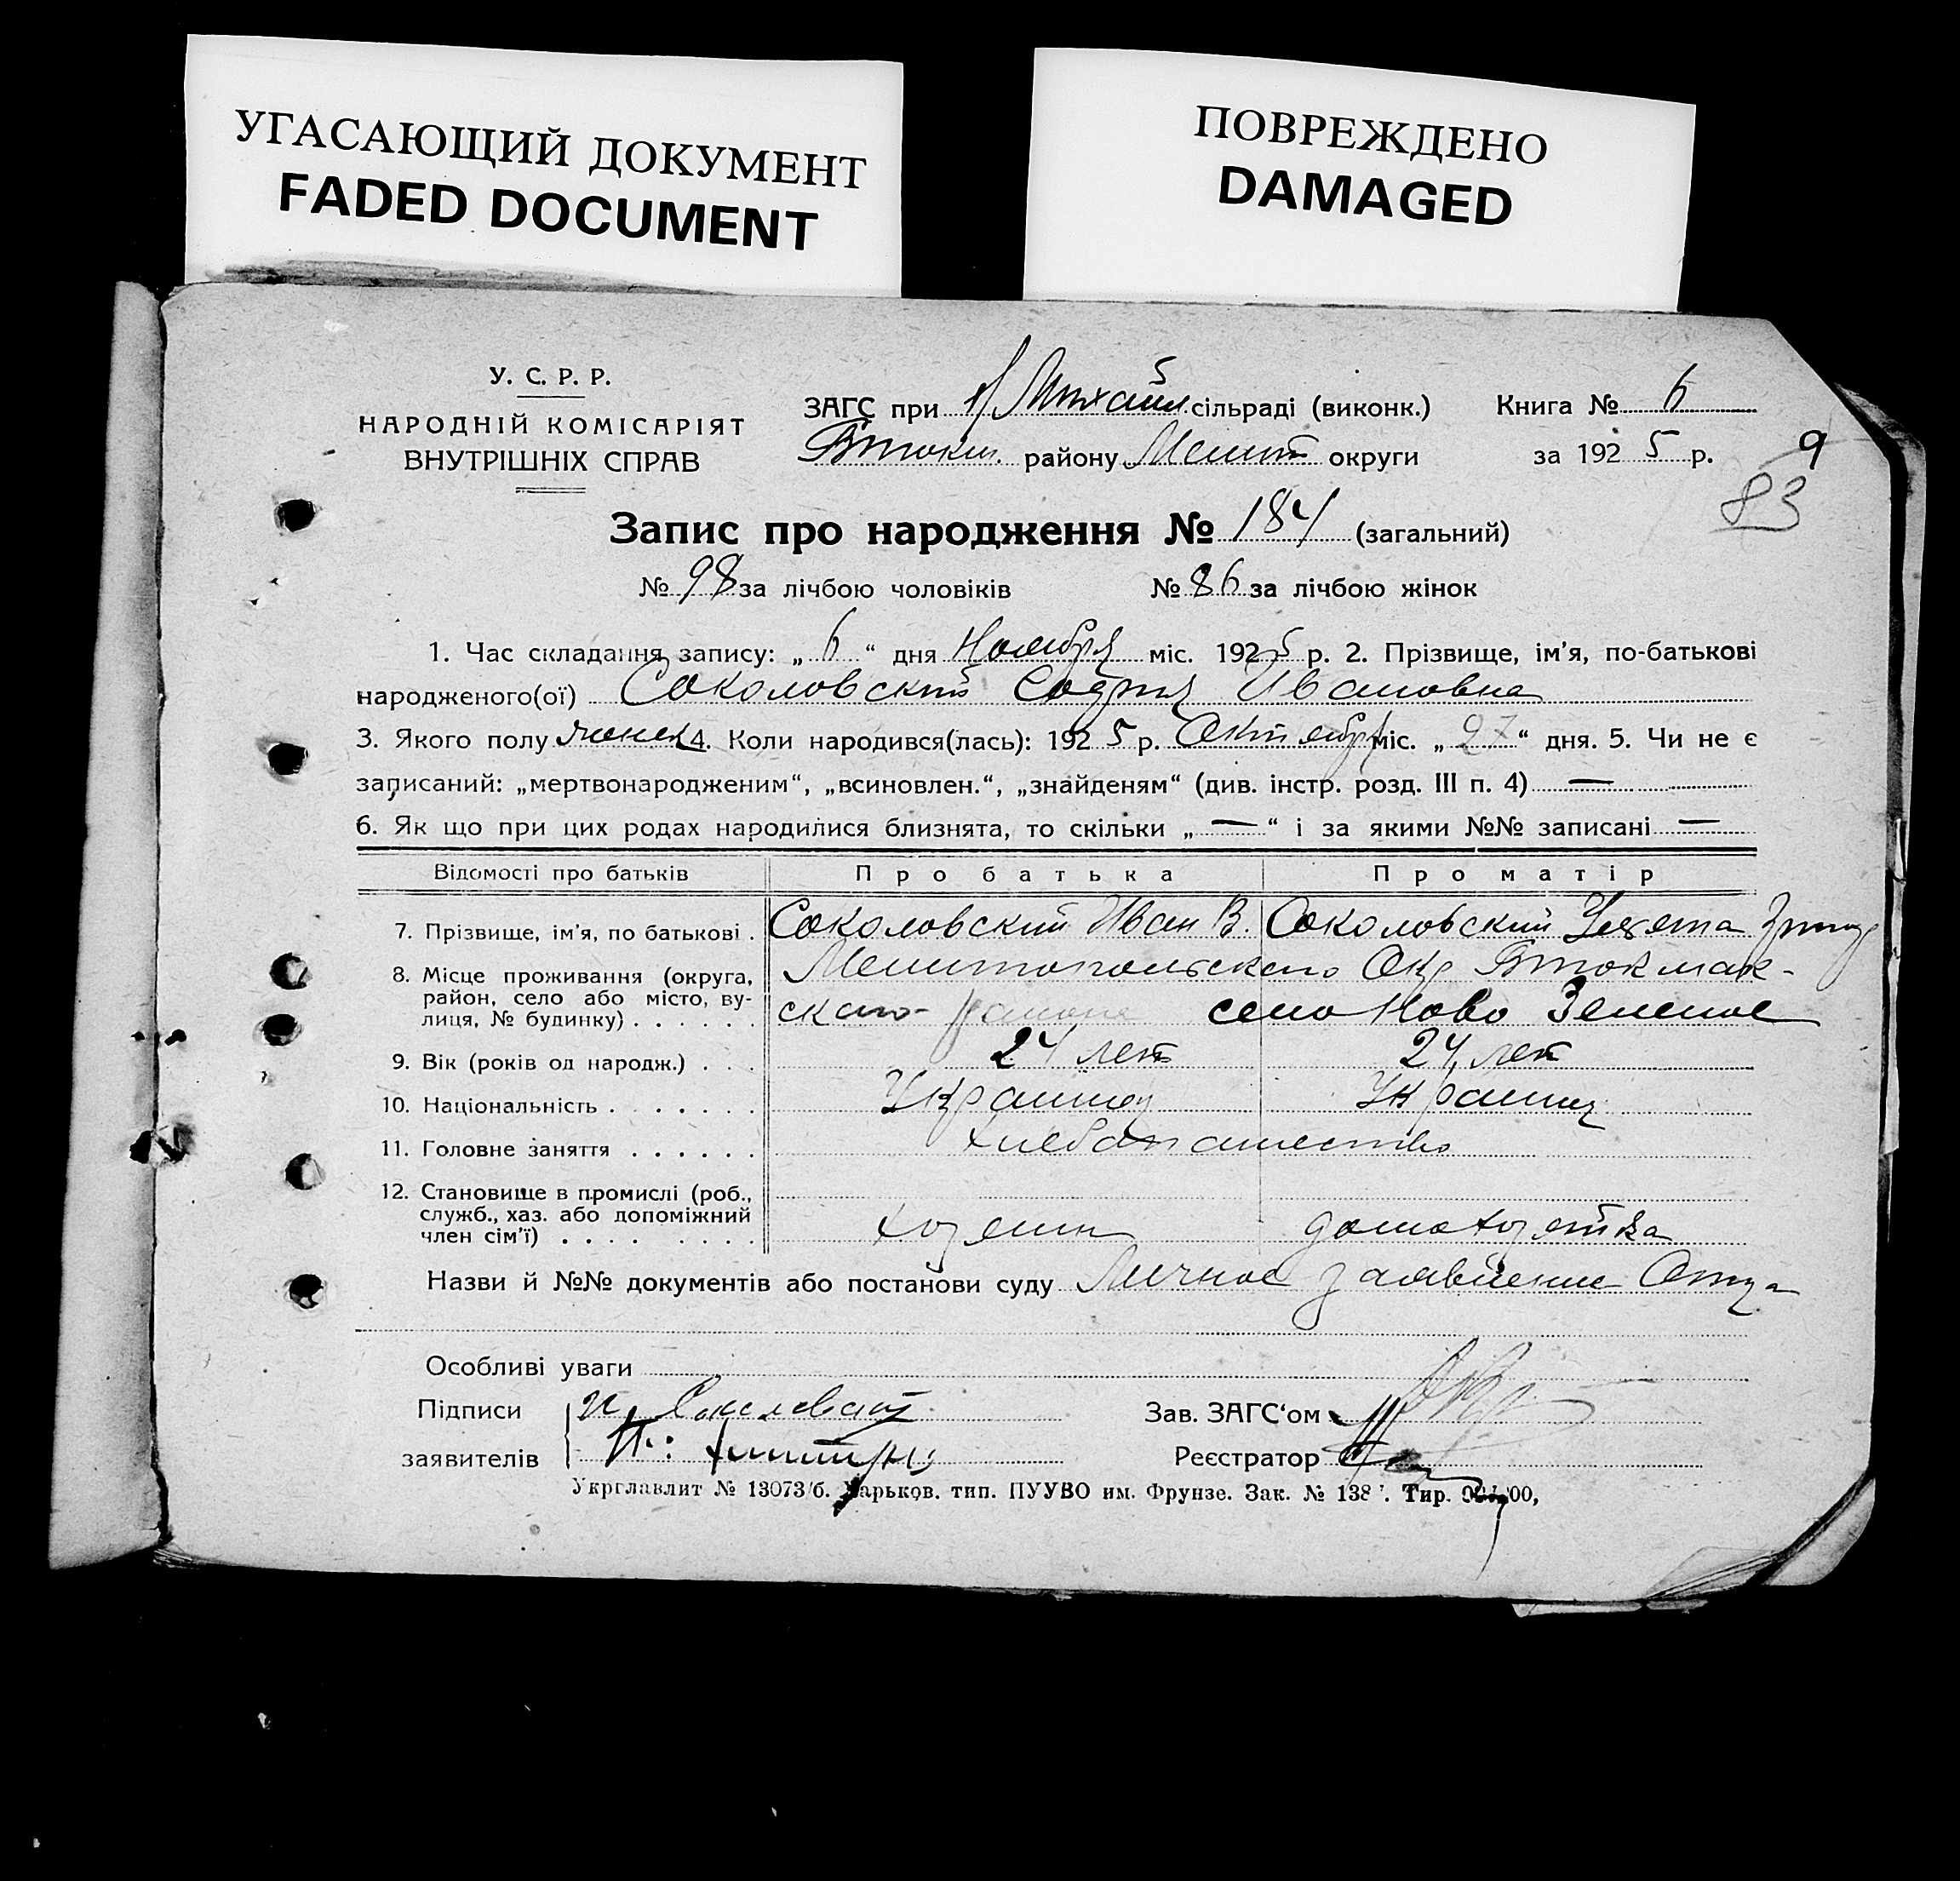 УГАСАЮЩИЙ ДОКУМЕНТ
FADED DOCUMENT
ПОВРЕЖДЕНО
DAMAGED
У. С. Р. Р.
НАРОДНІЙ КОМІСАРІЯТ
ВНУТРІШНІХ СПРАВ
ЗАГС при Михайл сільраді (виконк.) Книга № 6
Втокм. району Мелит округи за 1925 р. 9
83
Запис про народження № 184 (загальний)
№ 98 за лічбою чоловіків № 86 за лічбою жінок
1. Час складання запису: „ 6 “ дня Ноября міс. 1925 р. 2. Прізвище, ім'я, по-батькові
народженого(ої) Соколовский София Ивановна
3. Якого полу женск 4. Коли народився(лась): 1925 р. Октября міс. „ 27 “ дня. 5. Чи не є
записаний: „мертвонародженим“, „всиновлен.“, „знайденям“ (див. інстр. розд. III п. 4) —
6. Як що при цих родах народилися близнята, то скільки „ — “ і за якими №№ записані —
Відомості про батьків Про батька Про матір
7. Прізвище, ім'я, по батькові . Соколовский Иван В. Соколовский
8. Місце проживання (округа, Мелитопольского Окр Втокмак-
район, село або місто, ву-
лиця, № будинку) . . . . . . ского района село Ново Зеленое
9. Вік (років од народж.) . . . 24 лет 24 лет
10. Національність . . . . . . . Украинц Украинц
11. Головне заняття . . . . . . хлебопашество
12. Становище в промислі (роб.,
служб., хаз. або допоміжний
член сім'ї) . . . . . . . . хозяин домохозяйка
Назви й №№ документів або постанови суду Личное заявление Отца
Особливі уваги
Підписи И. Соколовский Зав. ЗАГС'ом
заявителів Реєстратор
Укрглавлит № 13073/б. Харьков. тип. ПУУВО им. Фрунзе. Зак. № 138 . Тир.